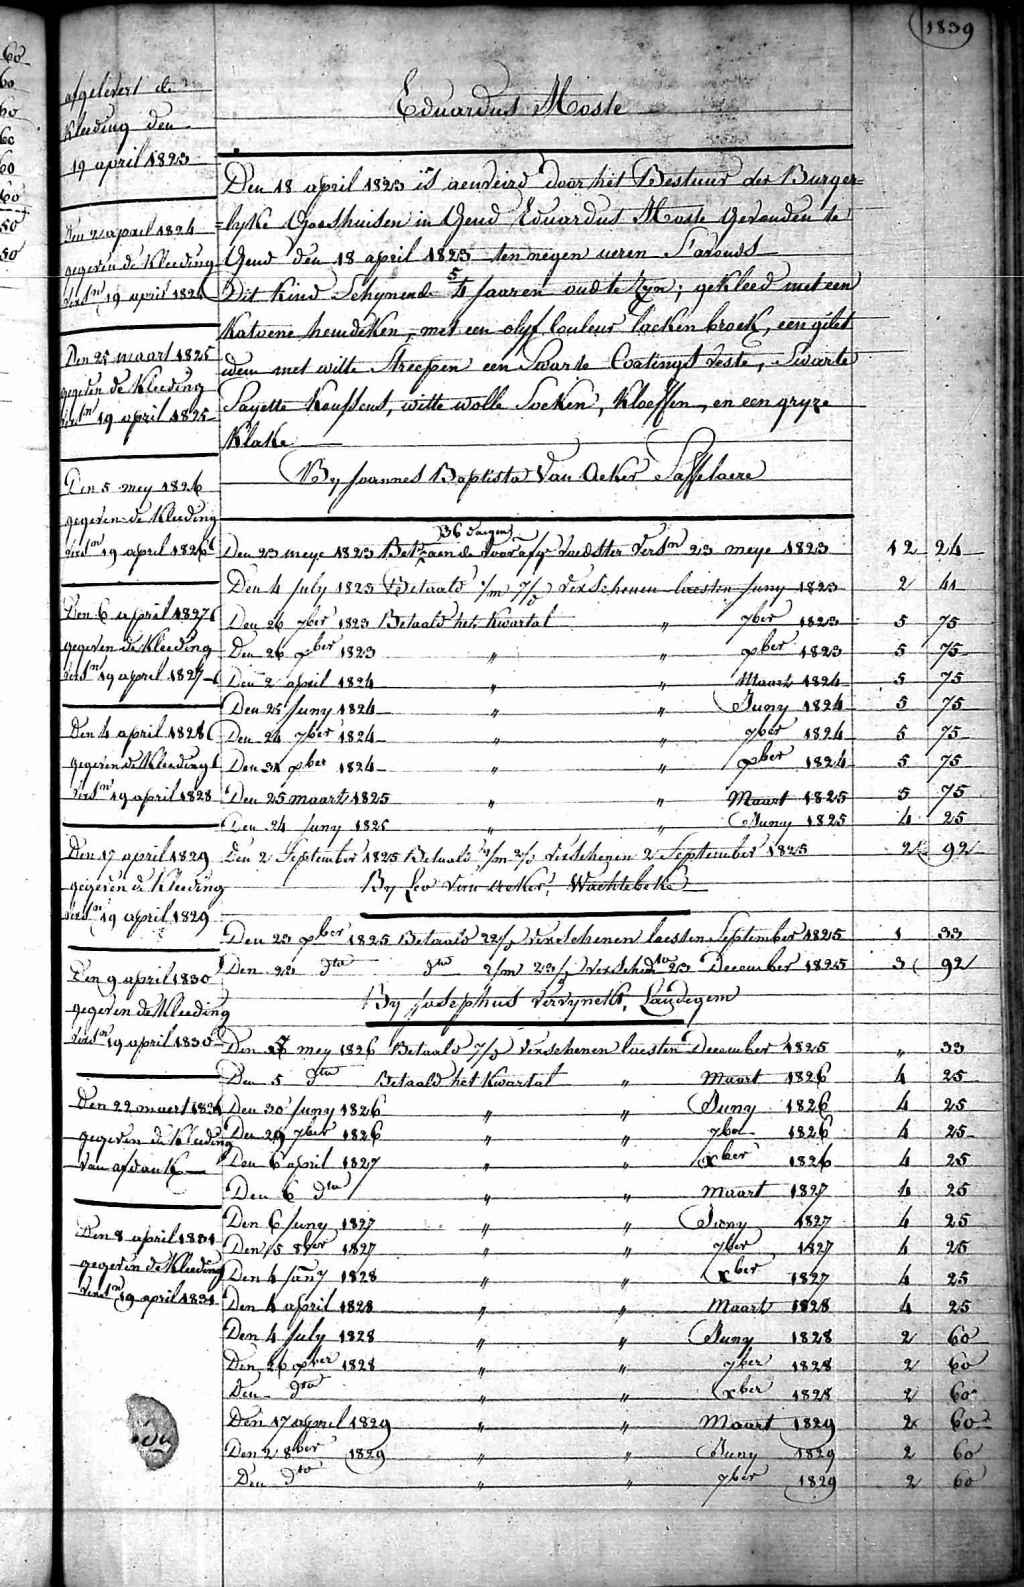 1839
Eduardus Moste
afgelevert de
Kleeding den
19 april 1823
Den 2 april 1824
gegeven de Kleeding
versn 19 april 1824
Den 25 maart 1825
gegeven de Kleeding
versn 19 april 1825
Den 5 mey 1826
gegeven de Kleeding
versn 19 april 1826
Den 6 april 1827
gegeven de Kleeding
versn 19 april 1827
Den 4 april 1828
gegeven de Kleeding
versn 19 april 1828
Den 17 april 1829
gegeven de Kleeding
versn 19 april 1829
Den 9 april 1830
gegeven de Kleeding
versn 19 april 1830
Den 22 maert 1831
gegeven de Kleeding
van afdank
Den 8 april 1831
gegeven de Kleeding
versn 19 april 1831
Den 18 april 1823 is aenveird door het Bestuur der Burger=
=lyke Godshuisen in Gend Eduardus Moste Gevonden te
Gend den 18 april 1823 ten negen ueren S'avonds
Dit Kind Schynende 5 Jaaren oud te Zyn; gekleed met een
Katoene hemdeken, met een olyf Couleur laeken broek, een gilet
idem met witte Streepen een Swarte Coatings veste, Swarte
Sayette Koussens, witte wolle Socken, Kloeffen, en een gryze
Klake
By Joannes Baptista Van Acker Saffelaere
36 daegen
Den 23 meye 1823 Betaende voor afg voedster versn 23 meye 1823 12 24
Den 4 July 1823 Betaald 1/m 7/d verschenen laesten Juny 1823 2 41
Den 26 7ber 1823 Betaald het Kwartal " 7ber 1823 5 75
Den 26 xber 1823 " " xber 1823 5 75
Den 2 april 1824 " " Maart 1824 5 75
Den 25 Juny 1824 " " Juny 1824 5 75
Den 24 7ber 1824 " " 7ber 1824 5 75
Den 31 xber 1824 " " xber 1824 5 75
Den 25 maart 1825 " " Maart 1825 5 75
Den 24 Juny 1825 " " Juny 1825 4 25
Den 2 September 1825 Betaald 2/m 2/d verschenen 2 September 1825 2 92
By Leo Van Acker, Wachtebeke
Den 23 xber 1825 Betaald 28/d verschenen laesten September 1825 1 33
Den 23 dto dto 2/m 23/d verschen dto 23 December 1825 3 92
By Josephus Vervynckt, Landegem
Den 5 mey 1826 Betaald 7/d verschenen laesten December 1825 " 33
Den 5 dto Betaald het Kwartal " Maart 1826 4 25
Den 30 Juny 1826 " " Juny 1826 4 25
Den 29 7ber 1826 " " 7ber 1826 4 25
Den 6 april 1827 " " xber 1826 4 25
Den 6 dto " " Maart 1827 4 25
Den 6 Juny 1827 " " Juny 1827 4 25
Den 5 8ber 1827 " " 7ber 1827 4 25
Den 4 Jany 1828 " " xber 1827 4 25
Den 4 april 1828 " " Maart 1828 4 25
Den 4 July 1828 " " Juny 1828 2 60
Den 26 xber 1828 " " 7ber 1828 2 60
Den dto " " xber 1828 2 60
Den 17 april 1829 " " Maart 1829 2 60
Den 2 8ber 1829 " " Juny 1829 2 60
Den dto " " 7ber 1829 2 60